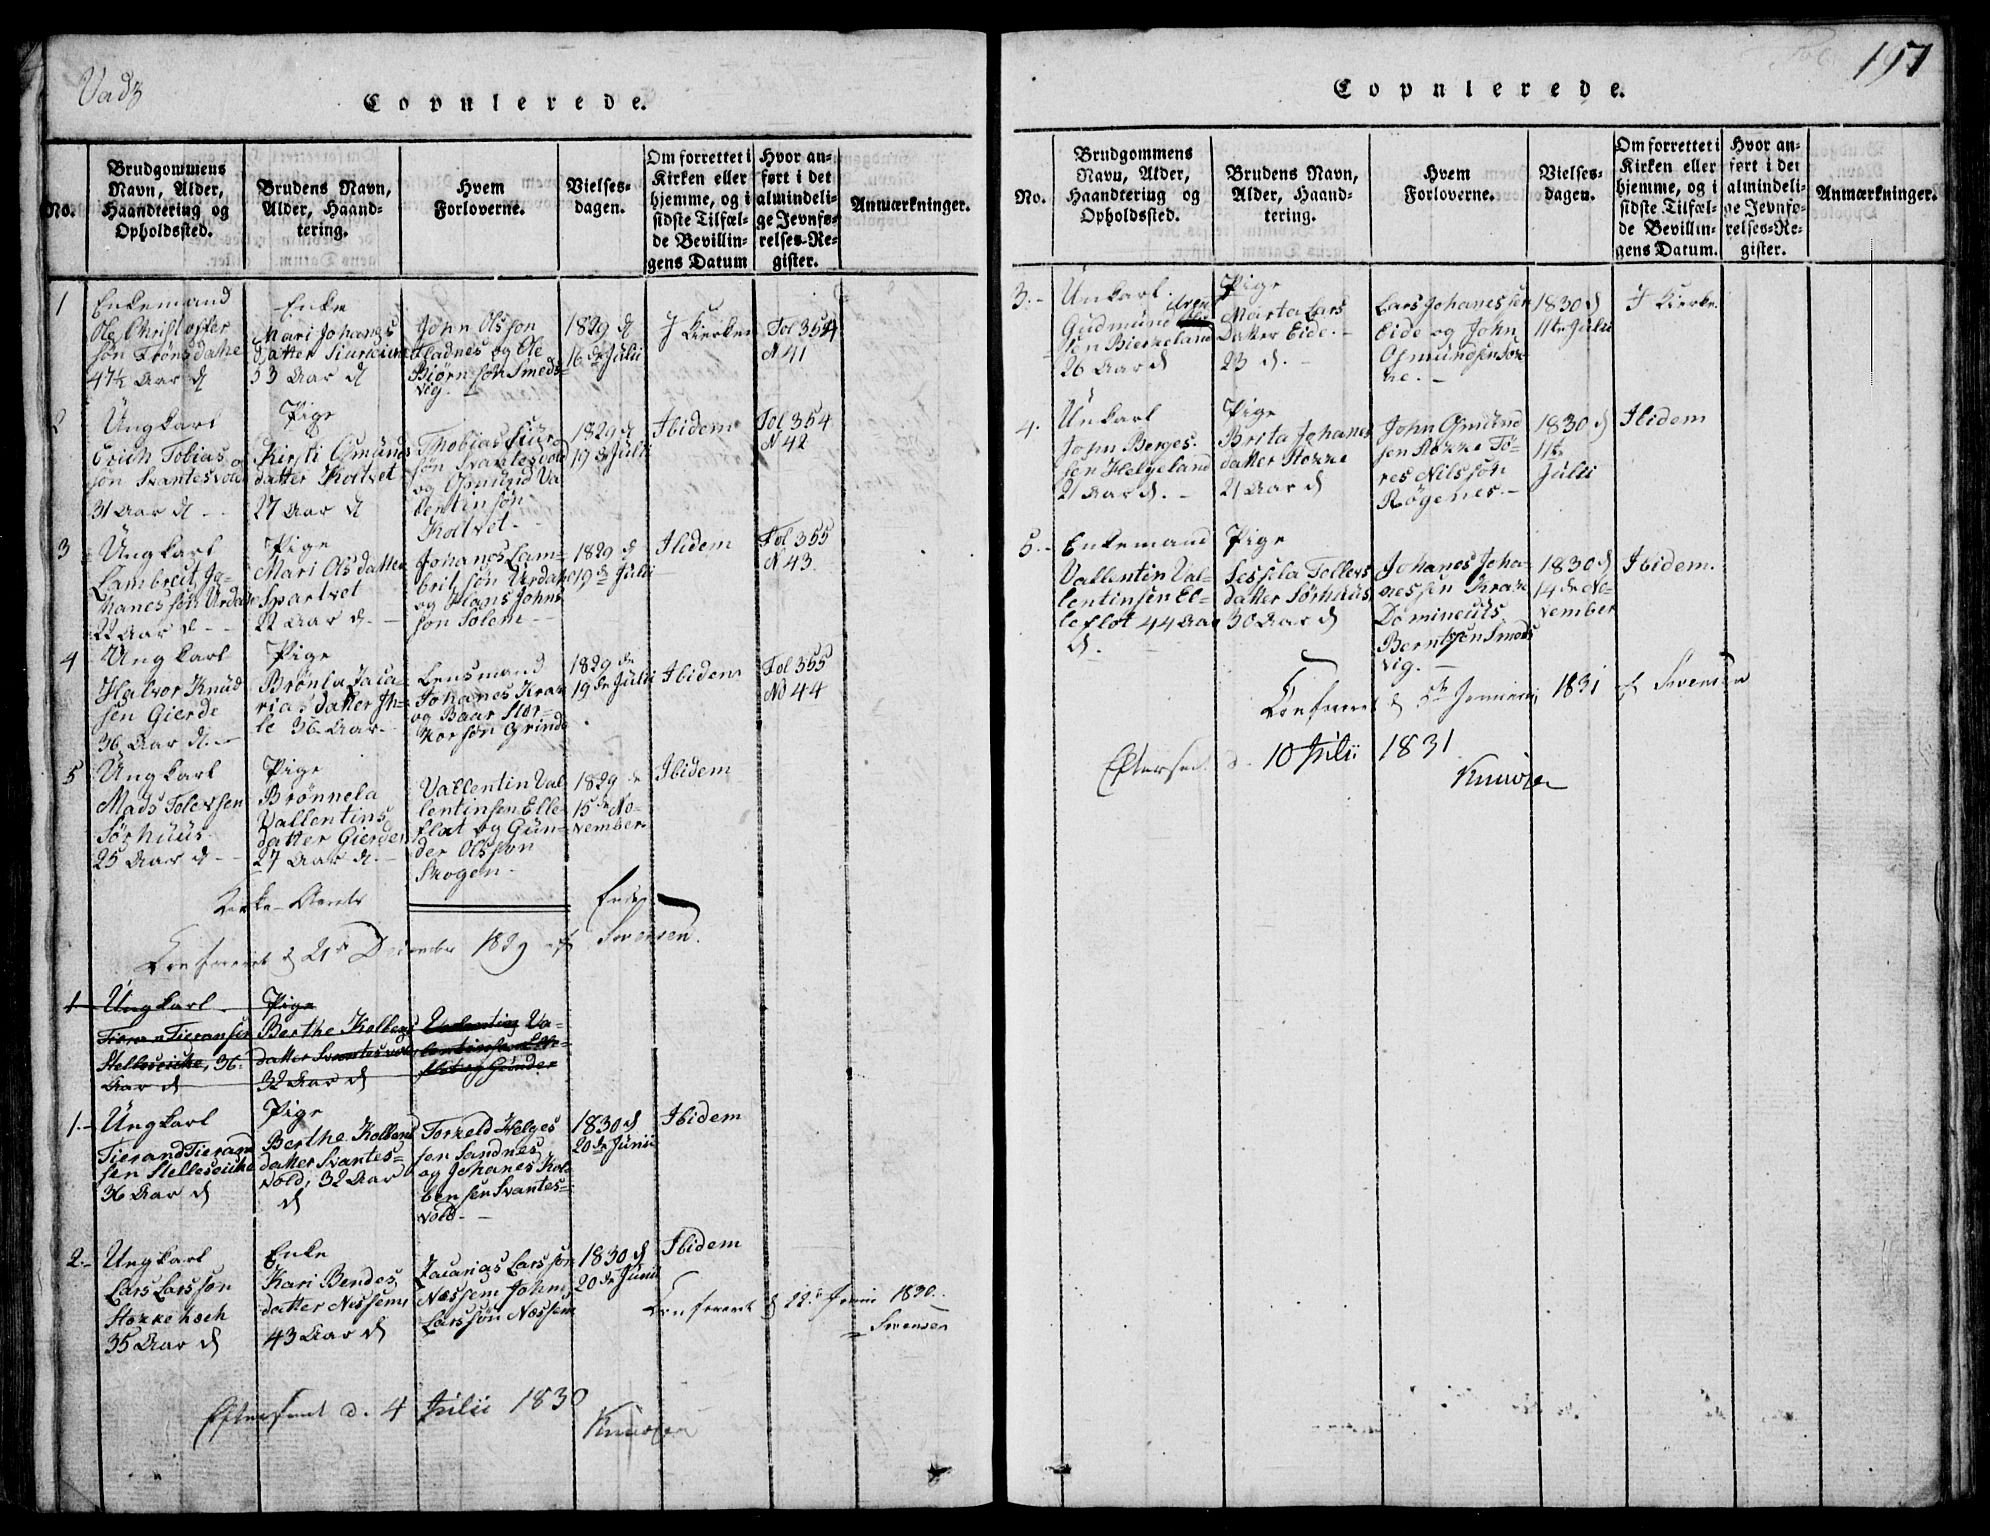 Vads
Copulerede.
No.
Brudgommens
Navn, Alder,
Haandtering og
Opholdssted.
Brudens Navn,
Alder, Haand-
tering.
Hvem
Forloverne.
Vielses-
dagen.
Om forrettet i
Kirken eller
hjemme, og i
sidste Tilfæl-
de Bevillin-
gens Datum
Hvor an-
ført i det
almindeli-
ge Jevnfø-
relses-Re-
gister.
Anmærkninger.
1
Enkemand
Ole Christoffer
søn Trønsdahe
47½ Aar d
Enke
Mari Johanes
datter
53 Aar d
John Olsson
Fladnes og Ole
Biørnsøn Smeds-
vig.
1829 d
16de Julii
I Kierken
Fol 354
N 41
2
Ungkarl
Erich Tobias
søn Svantesvold
31 Aar d
Pige
Kirsti Osmunds
datter Koltvet
27 Aar d
Thobias Siur
søn Svantesvold
og Osmund Va
lentinsøn
Koltvet
1829 d
19de Julii
Ibidem
Fol 354
N 42
3
Ungkarl
Lambreit Jo-
hanessøn Urdahe
22 Aar d
Pige
Mari Olsdatter
Svartvet
22 Aar d.
Johanes Lam-
britsøn Urdahe
og Hans Johns
søn Solem
1829 d
19de Julii
Ibidem
Fol 355
N 43.
4
Ungkarl
Halvor Knud
sen Gierde
36 Aar d.
Pige
Brønla Zaca-
rias datter Ih-
le 36 Aar
Lensmand
Johanes Krax
og Baar Stor-
korsøn Grinde
1829 de
19de Julii
Ibidem
Fol 355
No 44
5
Ungkarl
Mads Tolevsen
Sørhuus
25 Aar d
Pige
Brønnela
Vallentins
datter Gierde
27 Aar d.
Vallentin Val
lentinsen Elle-
flat og Gun-
der Olsson
Skogen.
1829 de
15de No-
vember
Ibidem
Kirke-Aarets Ende
Confereret d 21de December 1829 af Svensen.
1
Ungkarl
Tieran Tieransen
Stellseiche, 36
Aar d
Pige
Berthe Kolbens
datter Svantesvold
32 Aar d
Valentin Va-
lentinsen Elle-
flat og Gunder
1.
Ungkarl
Tierand Tieram
sen Stelleseiche
36 Aar d
Pige
Berthe Kolbens
datter Svantes-
vold, 32 Aar
d
Torkeld Helges
sen Sandnes
og Johanes Kol
bensen Svantes-
vold
1830 d
20de Junii
Ibidem
2.
Ungkarl
Lars Larsson
Stokke
35 Aar d
Enke
Kari Bendes
datter Nessem
43 Aar d
Zacarias Larsson
Næssem John
Larsson Næssem
1830 d
20de Junii
Ibidem
Confereret d 22de Junii 1830.
Svensen
Efterseet d. 4 Julii 1830
Knudsen
197
Copulerede.
No.
Brudgommens
Navn, Alder,
Haandtering og
Opholdssted.
Brudens Navn,
Alder, Haand-
tering.
Hvem
Forloverne.
Vielses-
dagen.
Om forrettet i
Kirken eller
hjemme, og i
sidste Tilfæl-
de Bevillin-
gens Datum.
Hvor an-
ført i det
almindeli-
ge Jevnfø-
relses-Re-
gister.
Anmærkninger.
3.
Unkarl
Gudmund
sen Bierkeland
26 Aar d
Pige
Marta Lars
datter Eide.
23 d.
Lars Johanessen
Eide og John
Osmundsen Stok
ke.
1830 d
11te Julii
I Kierke
4.
Unkarl
John Berges-
sen Helgeland
21 Aar d.
Pige
Brita Johanes
datter Stokke
21 Aar d
John Osmund
sen Stokke Tø-
res Nilsson
Røgenes.
1830 d
11te
Julii
Ibidem
5.
Enkemand
Vallentin Val-
lentinsen El-
leflot 44 Aar
d.
Pige
Sessila Tollevs
datter Sørhuus
30 Aar d
Johanes Joha-
nessen Krax
Dominicuts
Berntsen Smeds
vig.
1830 d
14de No-
vember
Ibidem.
Confereret d 5te Januari 1831 af Svensen
Efterseet d. 10 Julii 1831
Knudsen